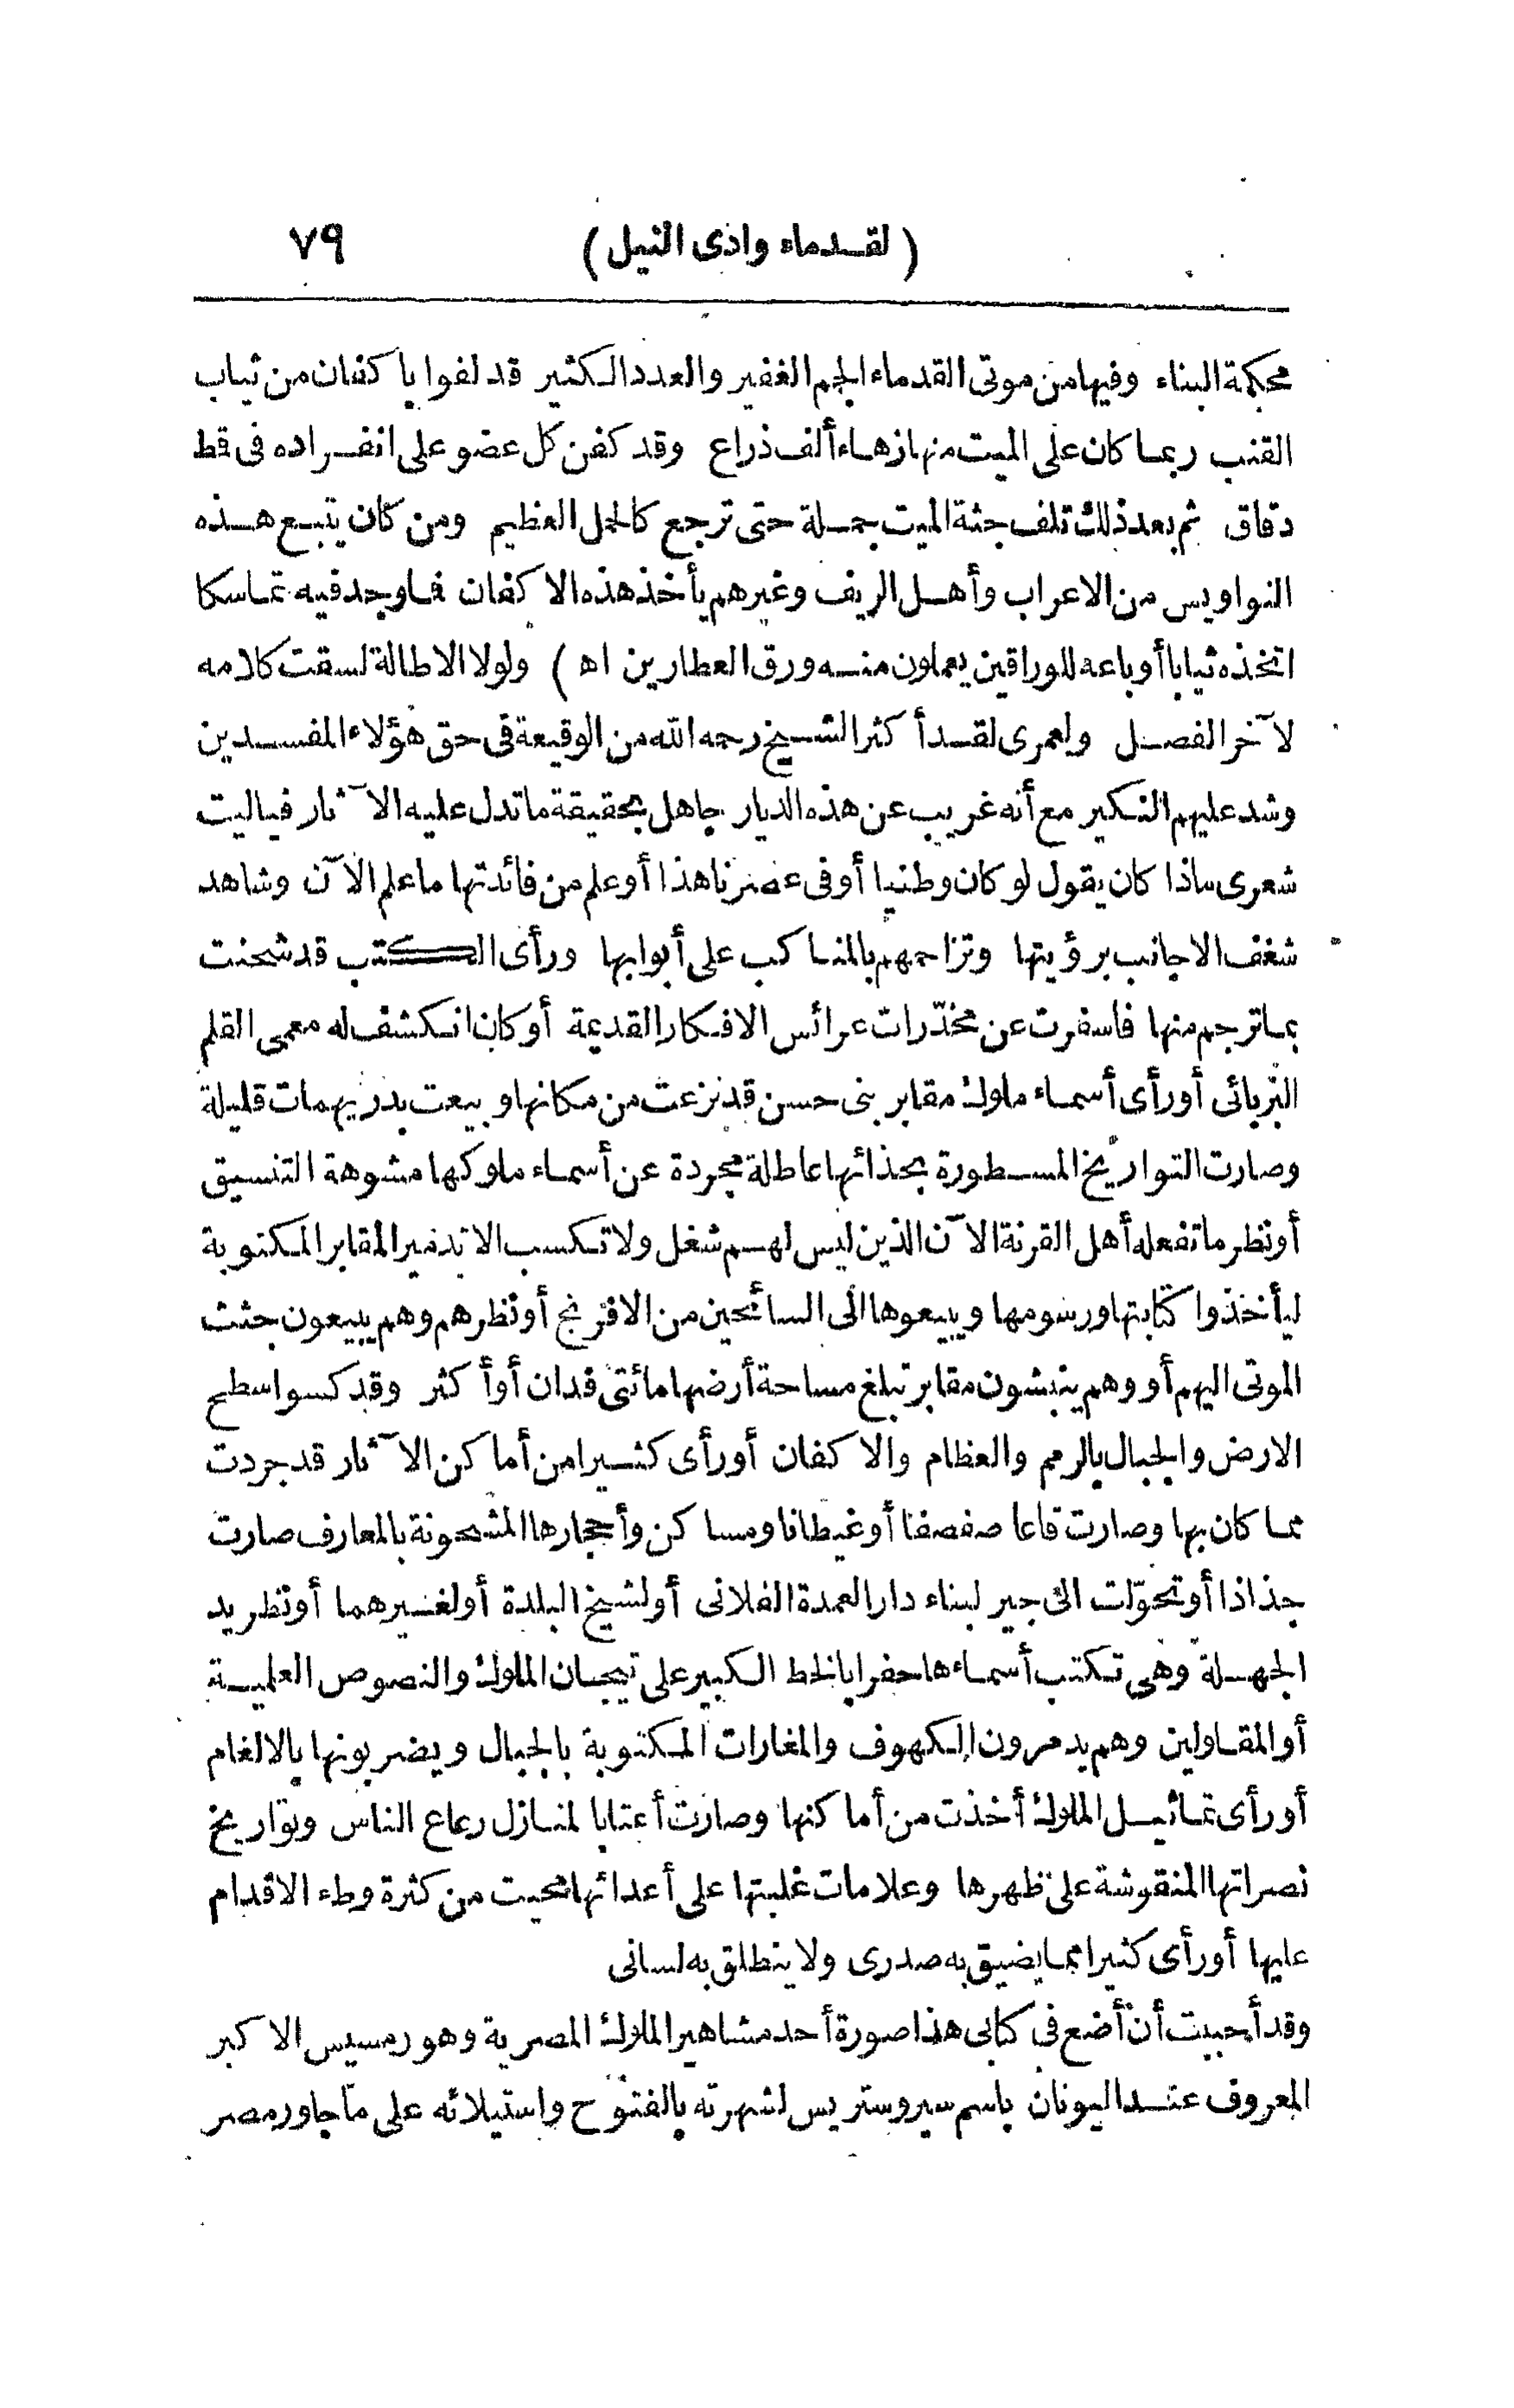 (لقدماء وادى النيل) ٧٩
محكمة البناء وفيها من موتى القدماء الجم الغفير والعدد الكثير قد لفوا باكفان من ثياب
القنب ربما كان على الميت منها زهاء ألف ذراع وقد كفن كل عضو على انفراده فى قط
دقاق ثم بعد ذلك تلف جثة الميت جملة حتى ترجع كالحمل العظيم ومن كان يتبع هذه
النواويس من الاعراب وأهل الريف وغيرهم يأخذ هذه الاكفان فما وجد فيه تماسكا
اتخذه ثيابا أو باعه للوراقين يعملون منه ورق العطارين اه) ولولا الاطالة لسقت كلامه
لآخر الفصل ولعمرى لقد أكثر الشيخ رحمه الله من الوقيعة فى حق هؤلاء المفسدين
وشد عليهم النكير مع أنه غريب عن هذه الديار جاهل بحقيقة ما تدل عليه الآثار فياليت
شعرى ماذا كان يقول لو كان وطنيا أو فى عصرنا هذا أو علم من فائدتها ما علم الآن وشاهد
شغف الاجانب برؤيتها وتزاحمهم بالمناكب على أبوابها ورأى الكتب قد شحنت
بما ترجم منها فاسفرت عن مخدّرات عرائس الافكار القديمة أو كان انكشف له معمى القلم
البربائى أو رأى أسماء ملوك مقابر بنى حسن قد نزعت من مكانها وبيعت بدريهمات قليلة
وصارت التواريخ المسطورة بحذائها عاطلة مجردة عن أسماء ملوكها مشوهة التنسيق
أو نظر ما تفعله أهل القرنة الآن الذين ليس لهم شغل ولا تكسب الا تدمير المقابر المكتوبة
ليأخذوا كتابتها ورسومها ويبيعوها الى السائحين من الافرنج أو نظرهم وهم يبيعون جثث
الموتى اليهم أو وهم ينبشون مقابر تبلغ مساحة أرضها مائتى فدان أو أكثر وقد كسوا سطح
الارض والجبال بالرمم والعظام والاكفان أو رأى كثيرا من أماكن الآثار قد جردت
مما كان بها وصارت قاعا صفصفا أو غيطانا ومساكن وأحجارها المشحونة بالمعارف صارت
جذاذا أو تحوّلت الى جير لبناء دار العمدة الفلانى أو لشيخ البلدة أو لغيرهما أو نظر يد
الجهلة وهى تكتب أسماءها حفرا بالخط الكبير على تيجان الملوك والنصوص العلمية
أو المقاولين وهم يدمرون الكهوف والمغارات المكتوبة بالجبال ويضربونها بالالغام
أو رأى تماثيل الملوك أخذت من أماكنها وصارت أعتابا لمنازل رعاع الناس وتواريخ
نصراتها المنقوشة على ظهرها وعلامات غلبتها على أعدائها محيت من كثرة وطء الاقدام
عليها أو رأى كثيرا مما يضيق به صدرى ولا ينطلق به لسانى
وقد أحببت أن أضع فى كتابى هذا صورة أحد مشاهير الملوك المصرية وهو رمسيس الاكبر
المعروف عند اليونان باسم سيروستريس لشهرته بالفتوح واستيلائه على ما جاور مصر